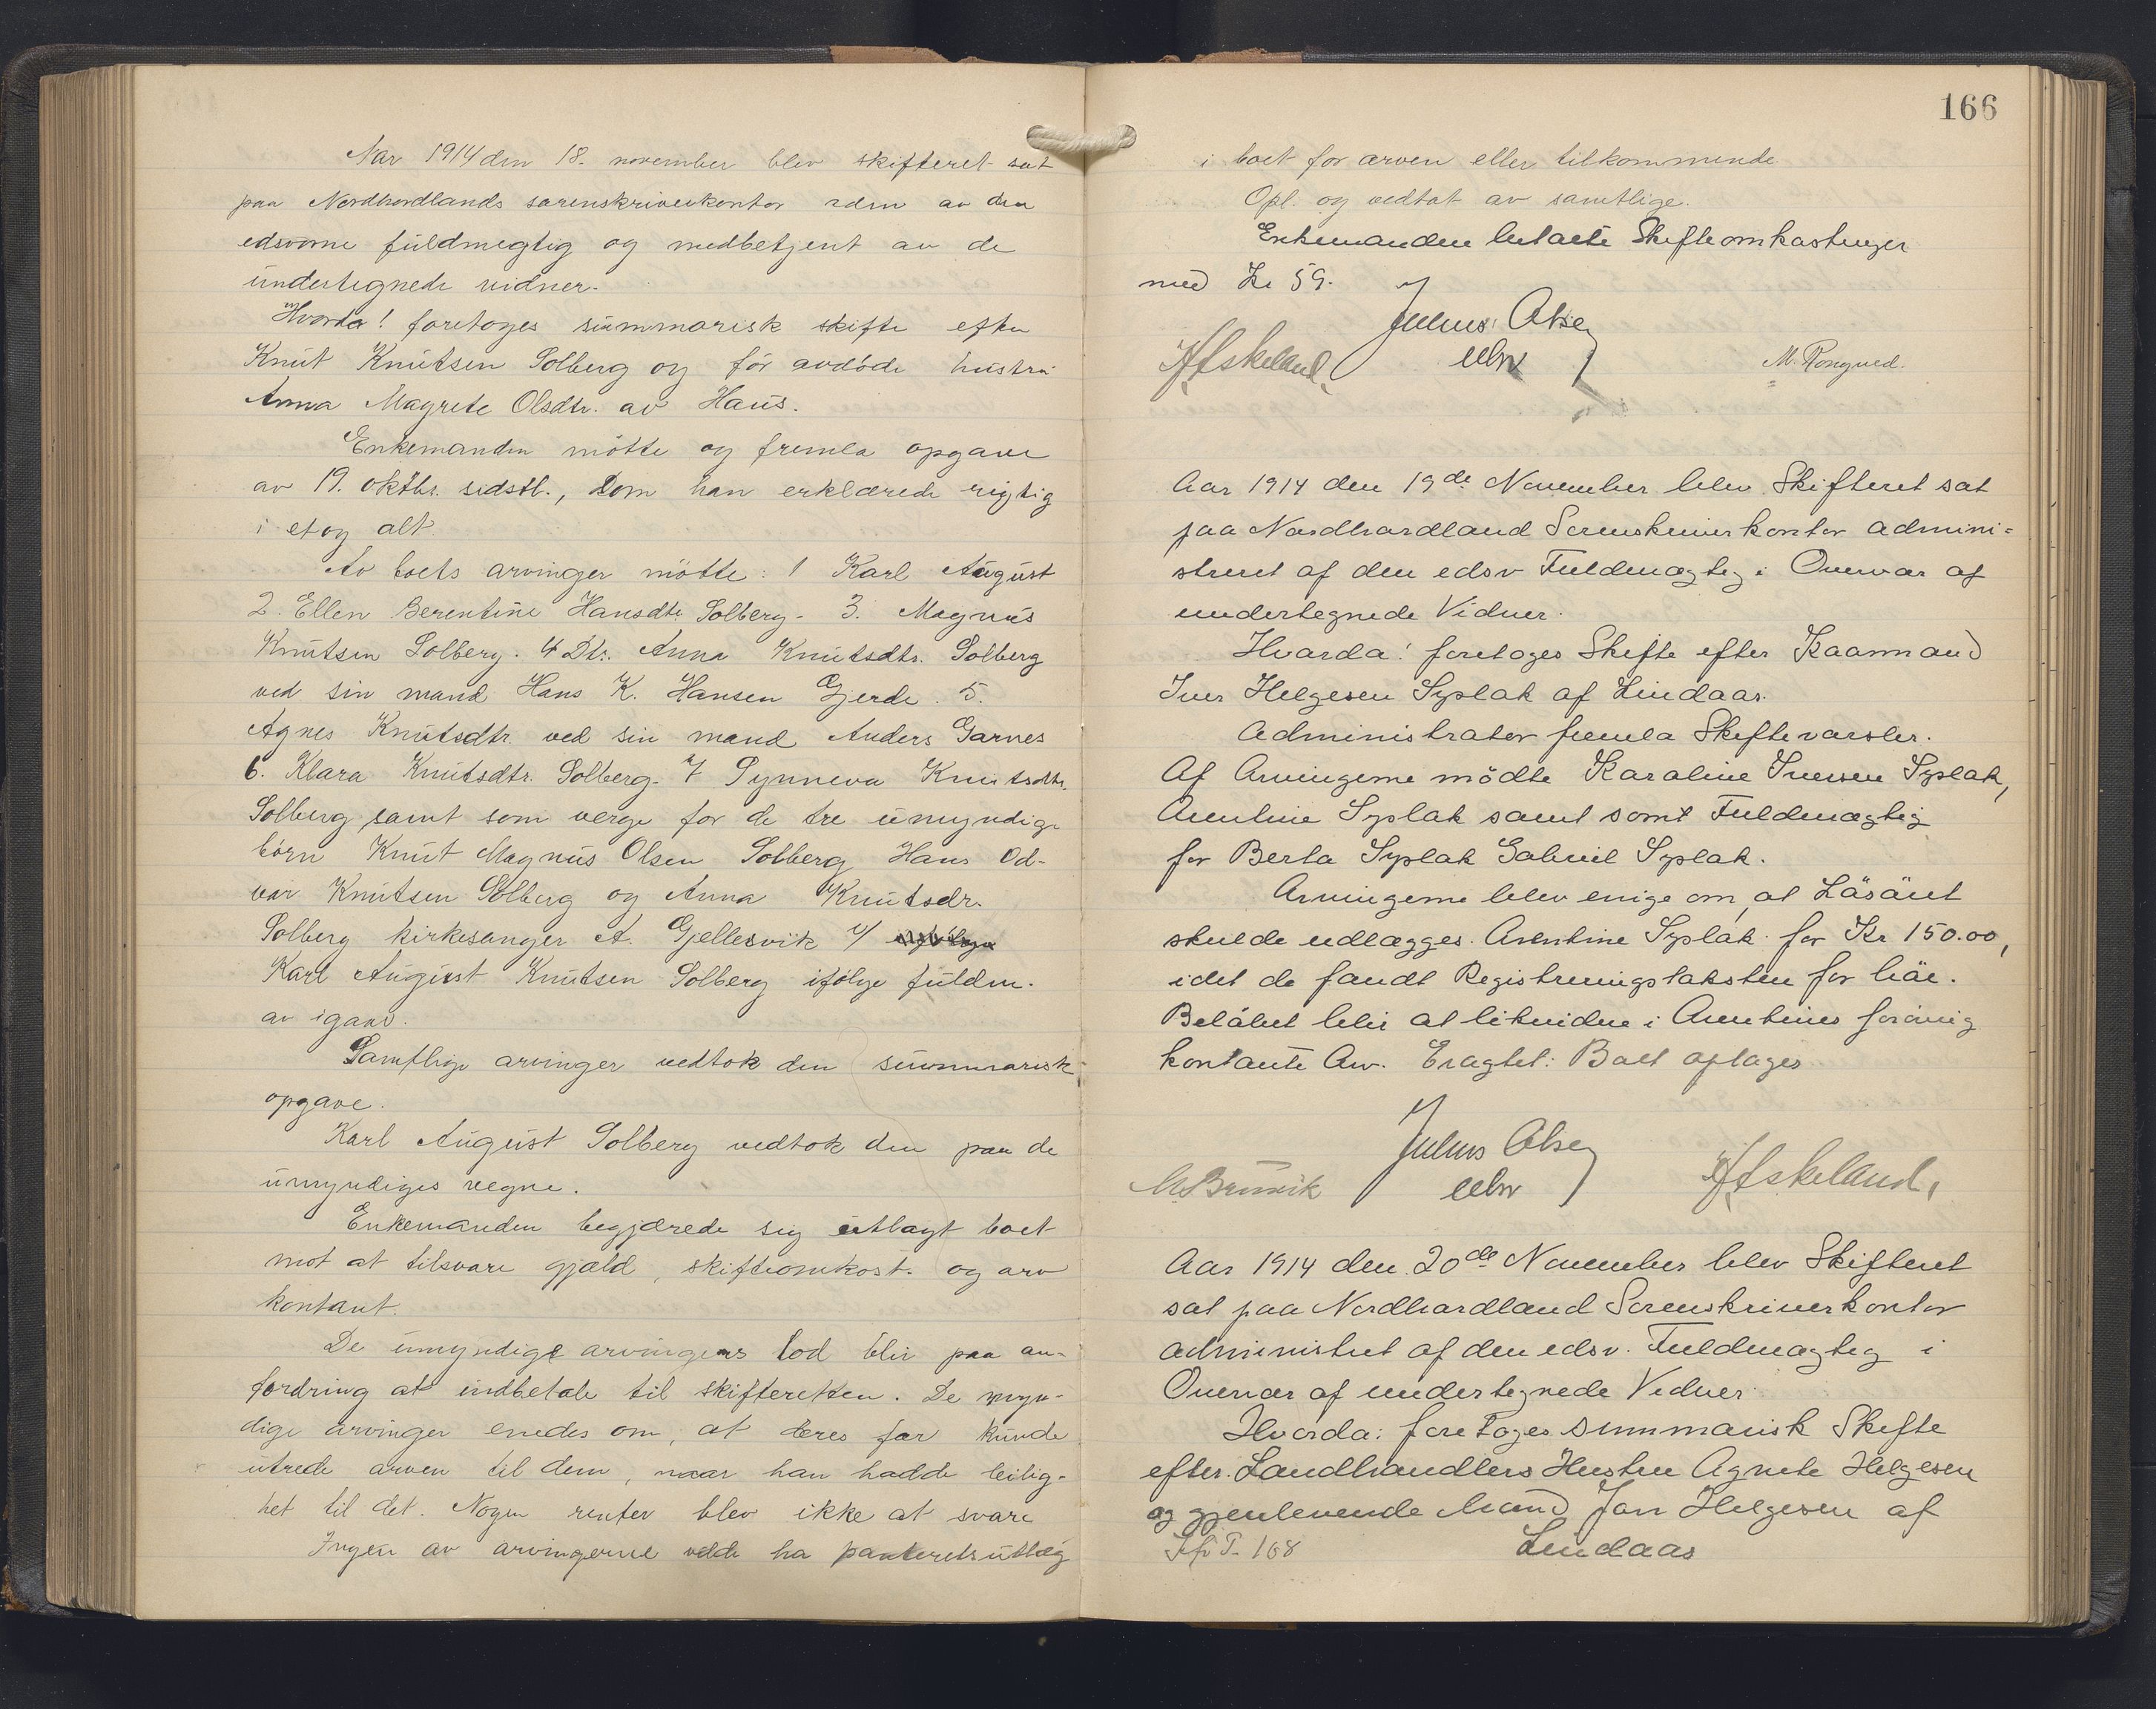 Aar 1914 den 18. november blev skifteret sat
paa Nordhordlands sorenskriverkontor adm av den
edsvorne fuldmegtig og medbetjent av de
undertegnede vidner.
Hvorda! foretoges summarisk skifte efter
Knut Knutsen Solberg og før avdøde hustru
Anna Magrete Olsdtr. av Haus.
Enkemanden møtte og fremla opgave
av 19. oktbr. sidstl., som han erklærede rigtig
i et og alt
Av boets arvinger møtte: 1 Karl August
2. Ellen Berentine Hansdtr Solberg - 3. Magnus
Knutsen Solberg. 4 Dtr. Anna Knutsdtr. Solberg
ved sin mand Hans K. Hansen Gjerde. 5.
Agnes Knutsdtr. ved sin mand Anders Garnes
6. Klara Knutsdtr. Solberg. 7 Synneva Knutsdtr.
Solberg samt som verge for de tre umyndige
børn Knut Magnus Olsen Solberg Hans Od-
var Knutsen Solberg og Anna Knutsdr.
Solberg kirkesanger A. Gjellesvik v/
Karl August Knutsen Solberg ifølge fuldm.
av igaar.
Samtlige arvinger vedtok den summarisk
opgave.
Karl August Solberg vedtok den paa de
umyndiges vegne.
Enkemanden begjærede sig utlagt boet
mot at tilsvare gjæld, skifteomkost. og arv
kontant.
De umyndige arvingers lod blir paa an-
fordring at indbetale til skifteretten. De myn-
dige arvinger enedes om, at deres far kunde
utrede arven til dem, naar han hadde leilig-
het til det. Nogen renter blev ikke at svare
Ingen av arvingerne vilde ha panteretsutlæg
166
i boet for arven eller tilkommende
Opl. og vedtat av samtlige.
Enkemanden betalte Skifteomkostninger
med Kr 59.
Julius Olsen
Askeland
M. Rongved.
Aar 1914 den 19de November blev Skifteret sat
paa Nordhordland Sorenskriverkontor admini=
streret af den edsv Fuldmægtig i Overvær af
undertegnede Vidner.
Hvorda! foretoges Skifte efter Kaarmand
Iver Helgesen Syslak af Lindaas.
Administrator fremla Skiftevarsler.
Af Arvingerne mødte Karoline Iversen Syslak,
Arentine Syslak samt som Fuldmægtig
for Berta Syslak Gabriel Syslak.
Arvingerne blev enige om, at Løsøret
skulde udlægges Arentine Syslak for Kr 150.00,
idet de fandt Registreringstaksten for høi.
Beløbet blir at likvidere i Arentines forøvrig
kontante Arv. Eragtet: Boet optages
Julius Olsen
Askeland,
Aar 1914 den 20de November blev Skifteret
sat paa Nordhordland Sorenskriverkontor
administret af den edsv. Fuldmægtig i
Overvær af undertegnede Vidner
Hvorda: foretoges summarisk Skifte
efter Landhandlers Hustru Agnete Helgesen
og gjenlevende Mand Jan Helgesen af
Lindaas
Skf P. 168